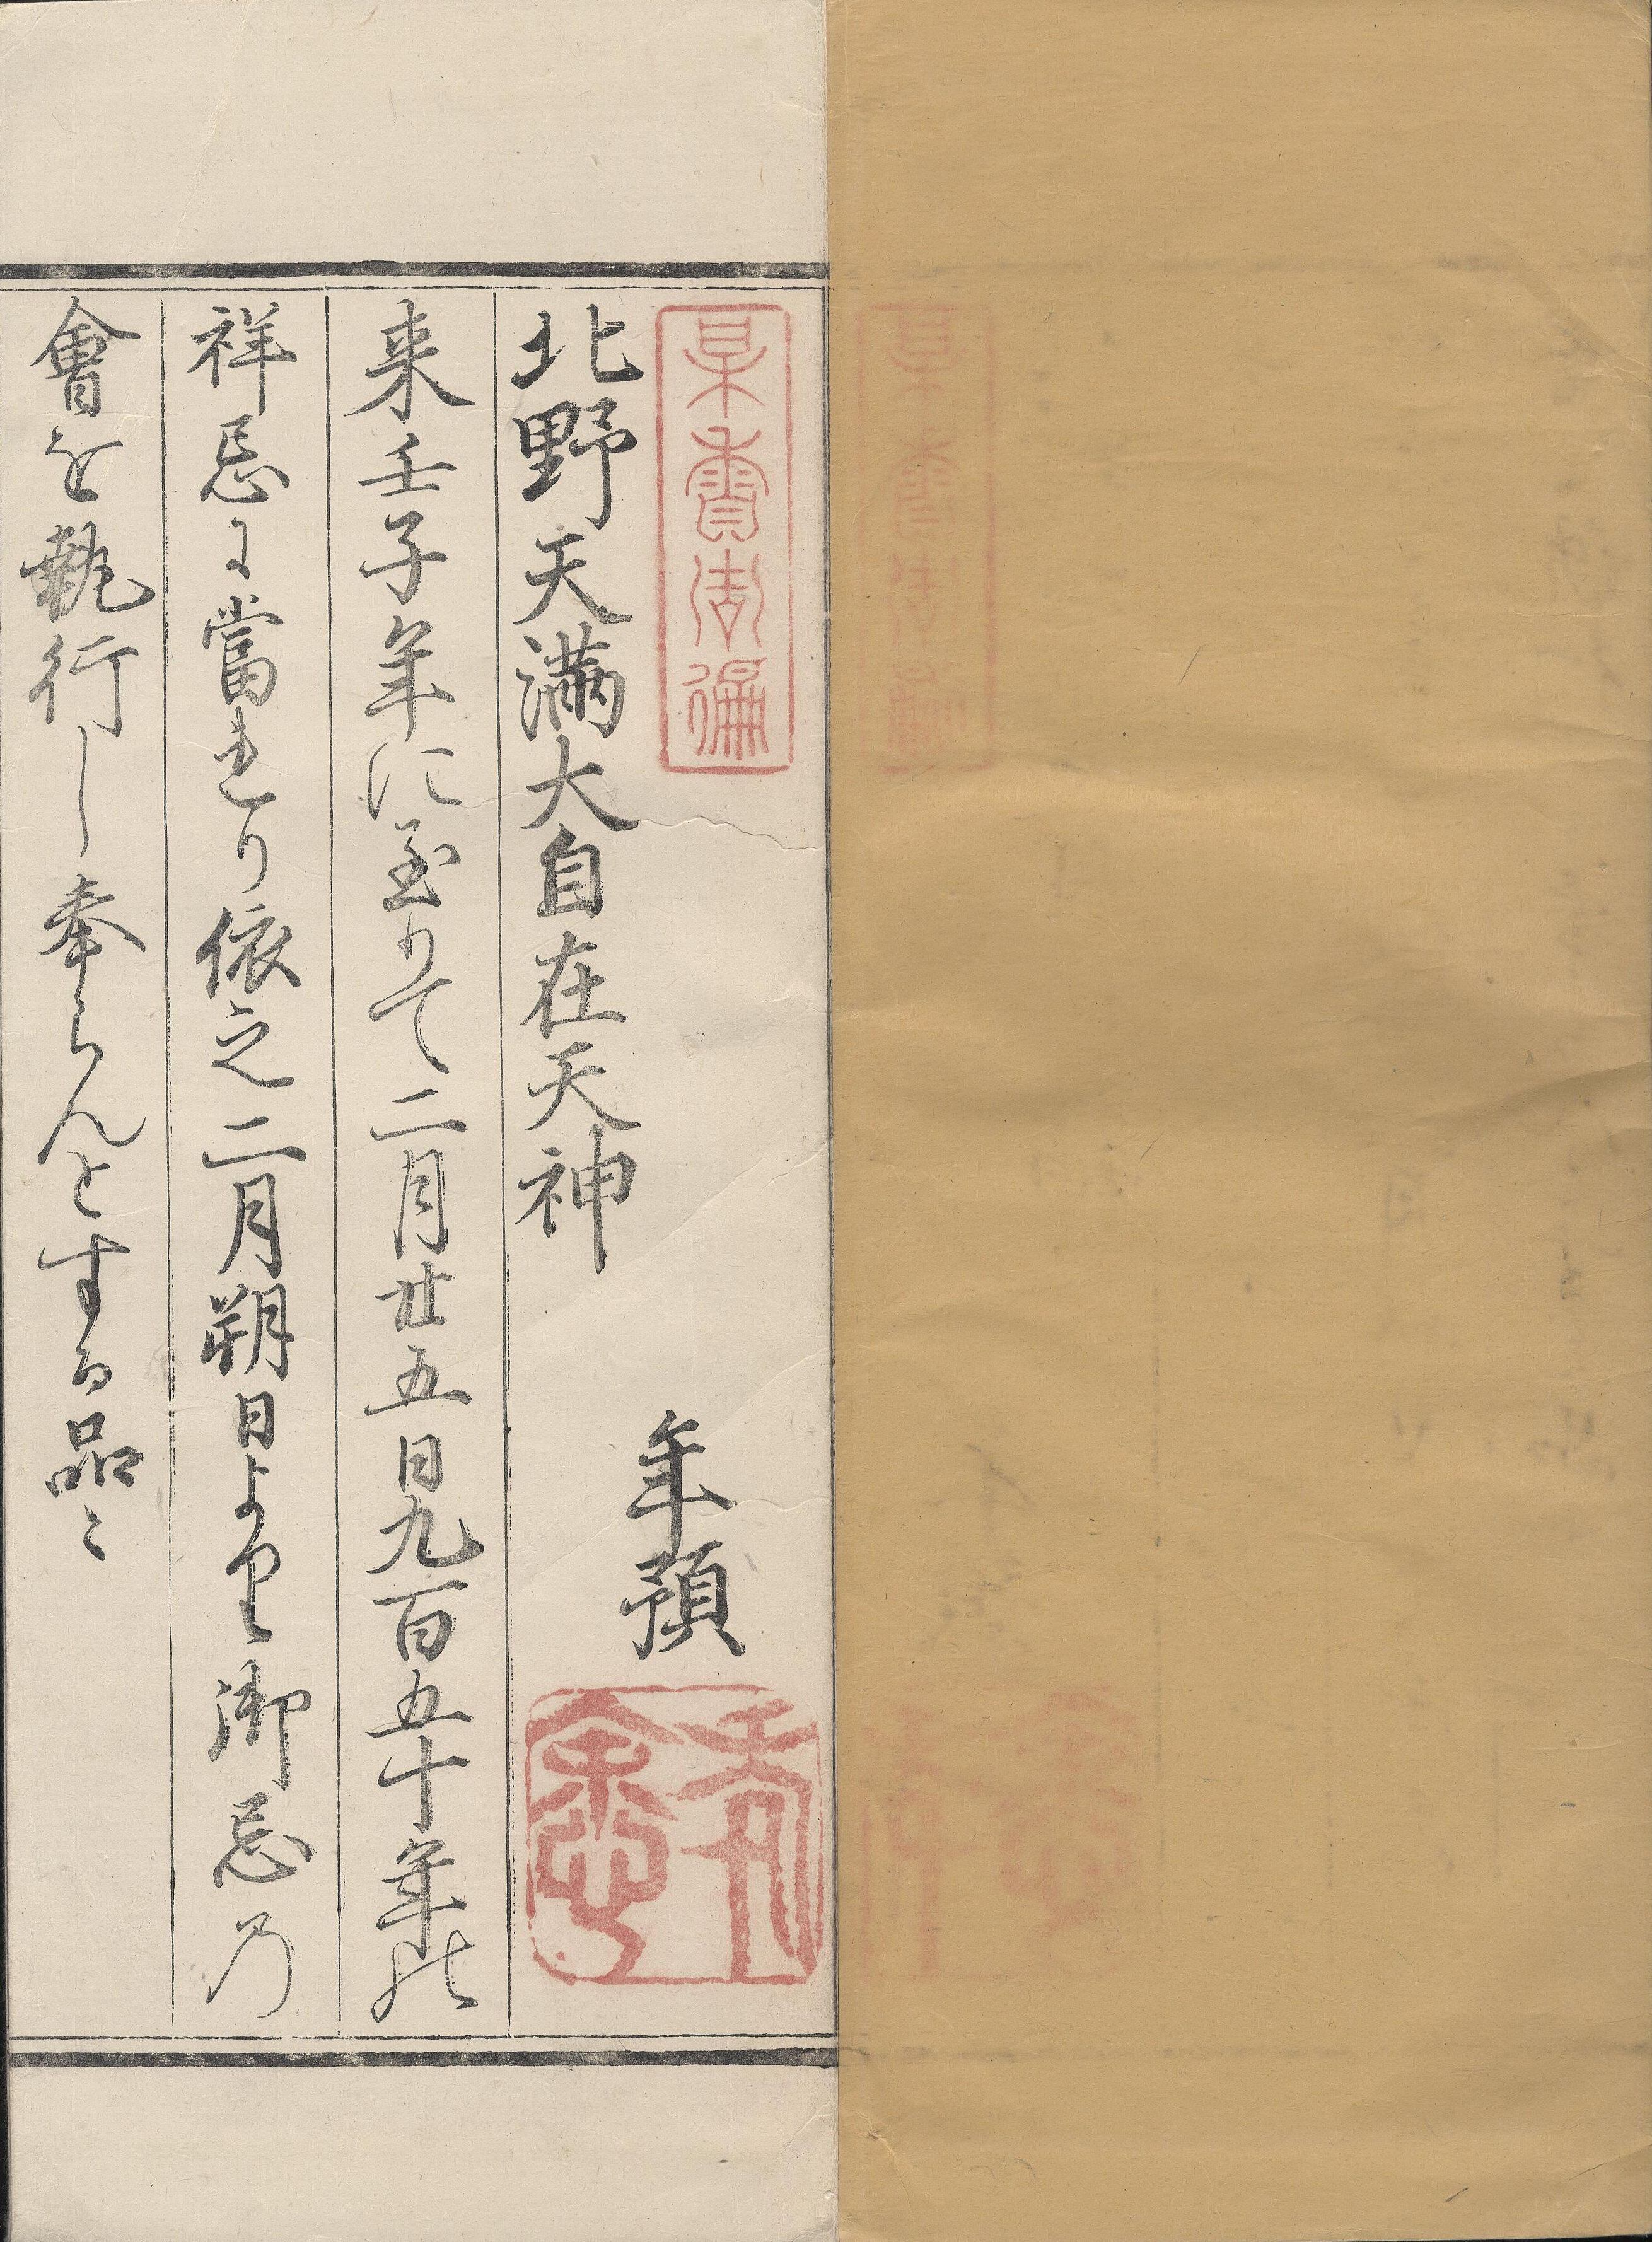 年預
北野天満大自在天神
来壬子年に至りて二月廿五日九百五十年の
祥忌に當れり依之二月朔日より御忌乃
會を執行し奉らんとする品〻